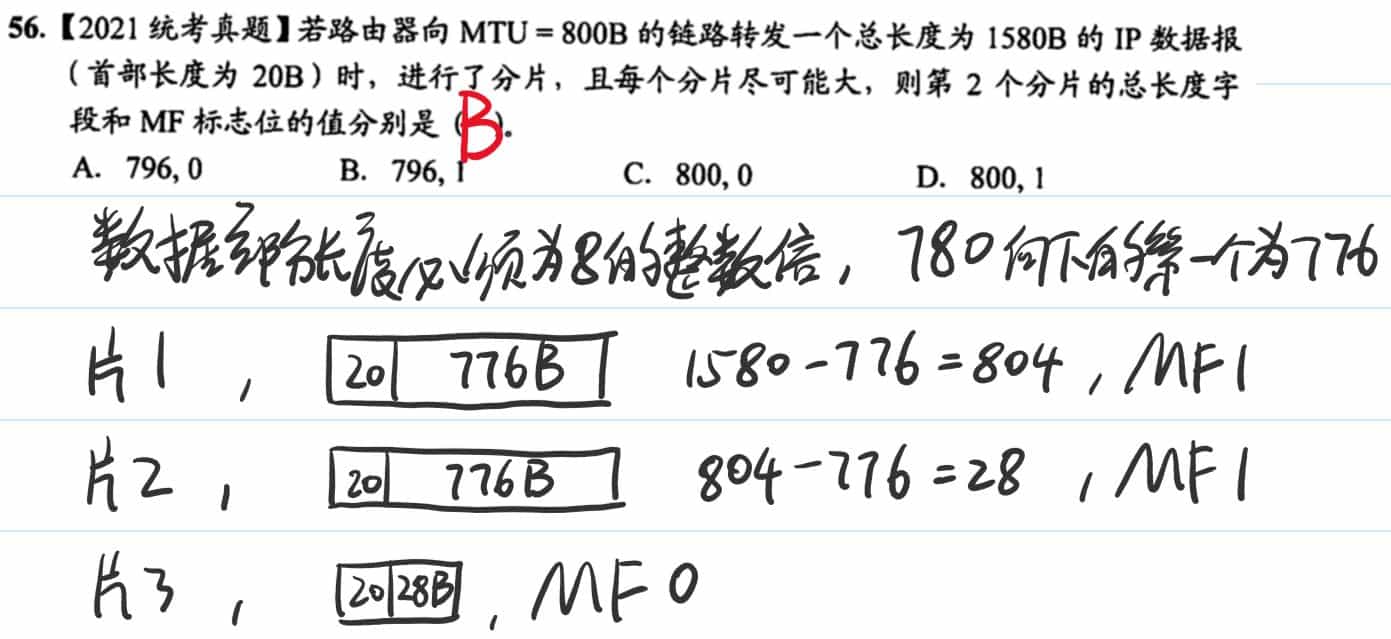 56.【2021 统考真题】若路由器向 MTU = 800B 的链路转发一个总长度为 1580B 的 IP 数据报
（首部长度为 20B）时，进行了分片，且每个分片尽可能大，则第 2 个分片的总长度字
段和 MF 标志位的值分别是（B）.
A. 796, 0 B. 796, 1 C. 800, 0 D. 800, 1
数据部分长度必须为8的整数倍，780向下的第一个为776
片1， 20 776B 1580-776=804，MF1
片2， 20 776B 804-776=28，MF1
片3， 20 28B，MF0